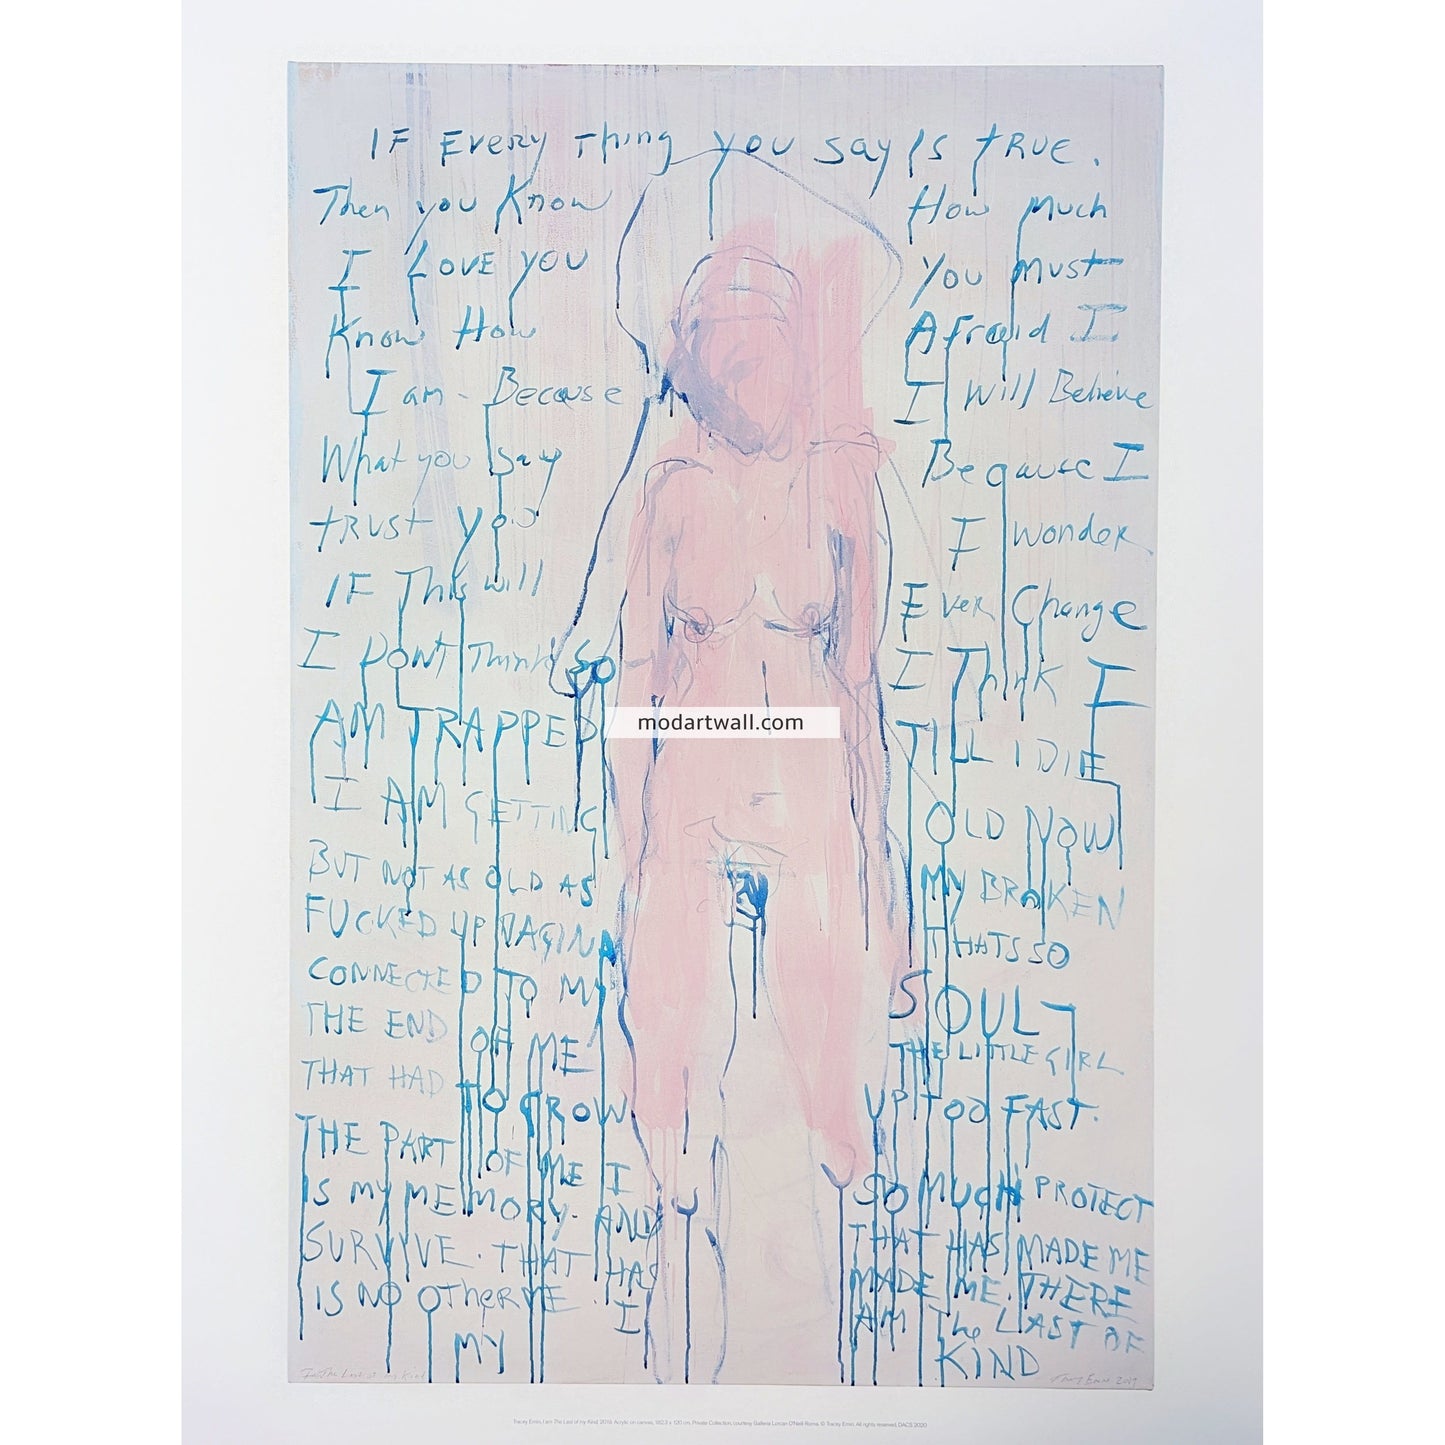 IF EVERY Thing you say Is tRUE.
Then you Know How Much
I LOVE YOU You Must
Know How Afraid I
I am - Because I Will Believe
What you say Because I
tRUST you I wonder
IF This will Ever Change
I DONT Think So I Think I
AM TRAPPED TILL I DIE
I AM GETTING OLD NOW
BUT NOT AS OLD AS MY BROKEN
FUCKED UP VAGINA THATS SO
CONNECTED TO MY SOUL -
THE END OF ME THE LITTLE GIRL
THAT HAD TO GROW UP TOO FAST.
THE PART OF ME I SO MUCH PROTECT
IS MY MEMORY. AND THAT HAS MADE ME
SURVIVE. THAT HAS MADE ME. THERE
IS NO OTHER ME. I AM The LAST OF
MY KIND
modartwall.com
I am The Last of my Kind
Tracey Emin 2019
Tracey Emin, I am The Last of my Kind, 2019. Acrylic on canvas, 182.3 x 120 cm. Private Collection, courtesy Galleria Lorcan O'Neill Roma. © Tracey Emin. All rights reserved, DACS 2020